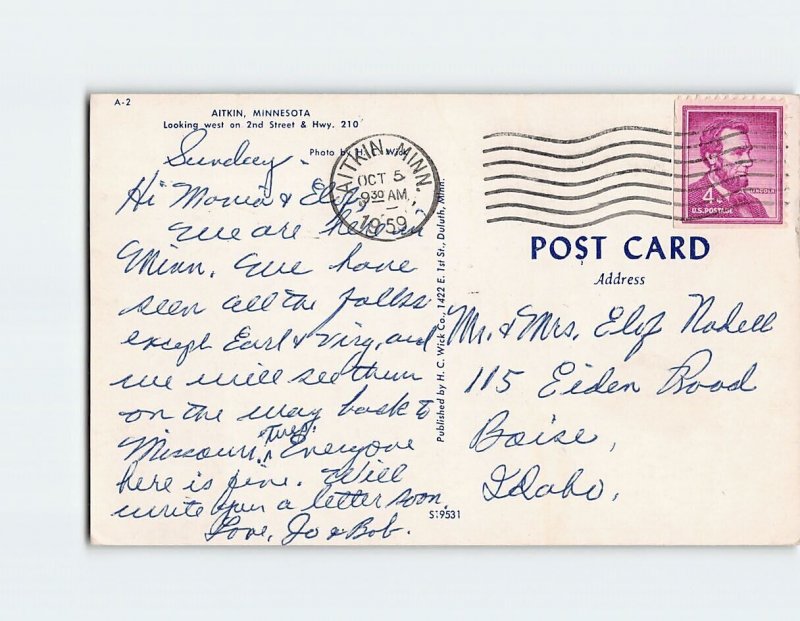 A-2
AITKIN, MINNESOTA
Looking west on 2nd Street & Hwy. 210
Photo by H. C. Wick
Sunday.
Hi Mornia & Elof,
We are here in
Minn. We have
seen all the folks
except Earl & Virg, and
we will see them
on the way back to
Missouri, Tues. Everyone
here is fine. Will
write you a letter soon.
Love, Jo & Bob.
AITKIN, MINN.
OCT 5
9 30 AM
1959
4¢
LINCOLN
U.S. POSTAGE
Published by H. C. Wick Co., 1422 E. 1st St., Duluth, Minn.
POST CARD
Address
Mr. & Mrs. Elof Nodell
115 Eiden Road
Boise,
Idaho,
S-9531